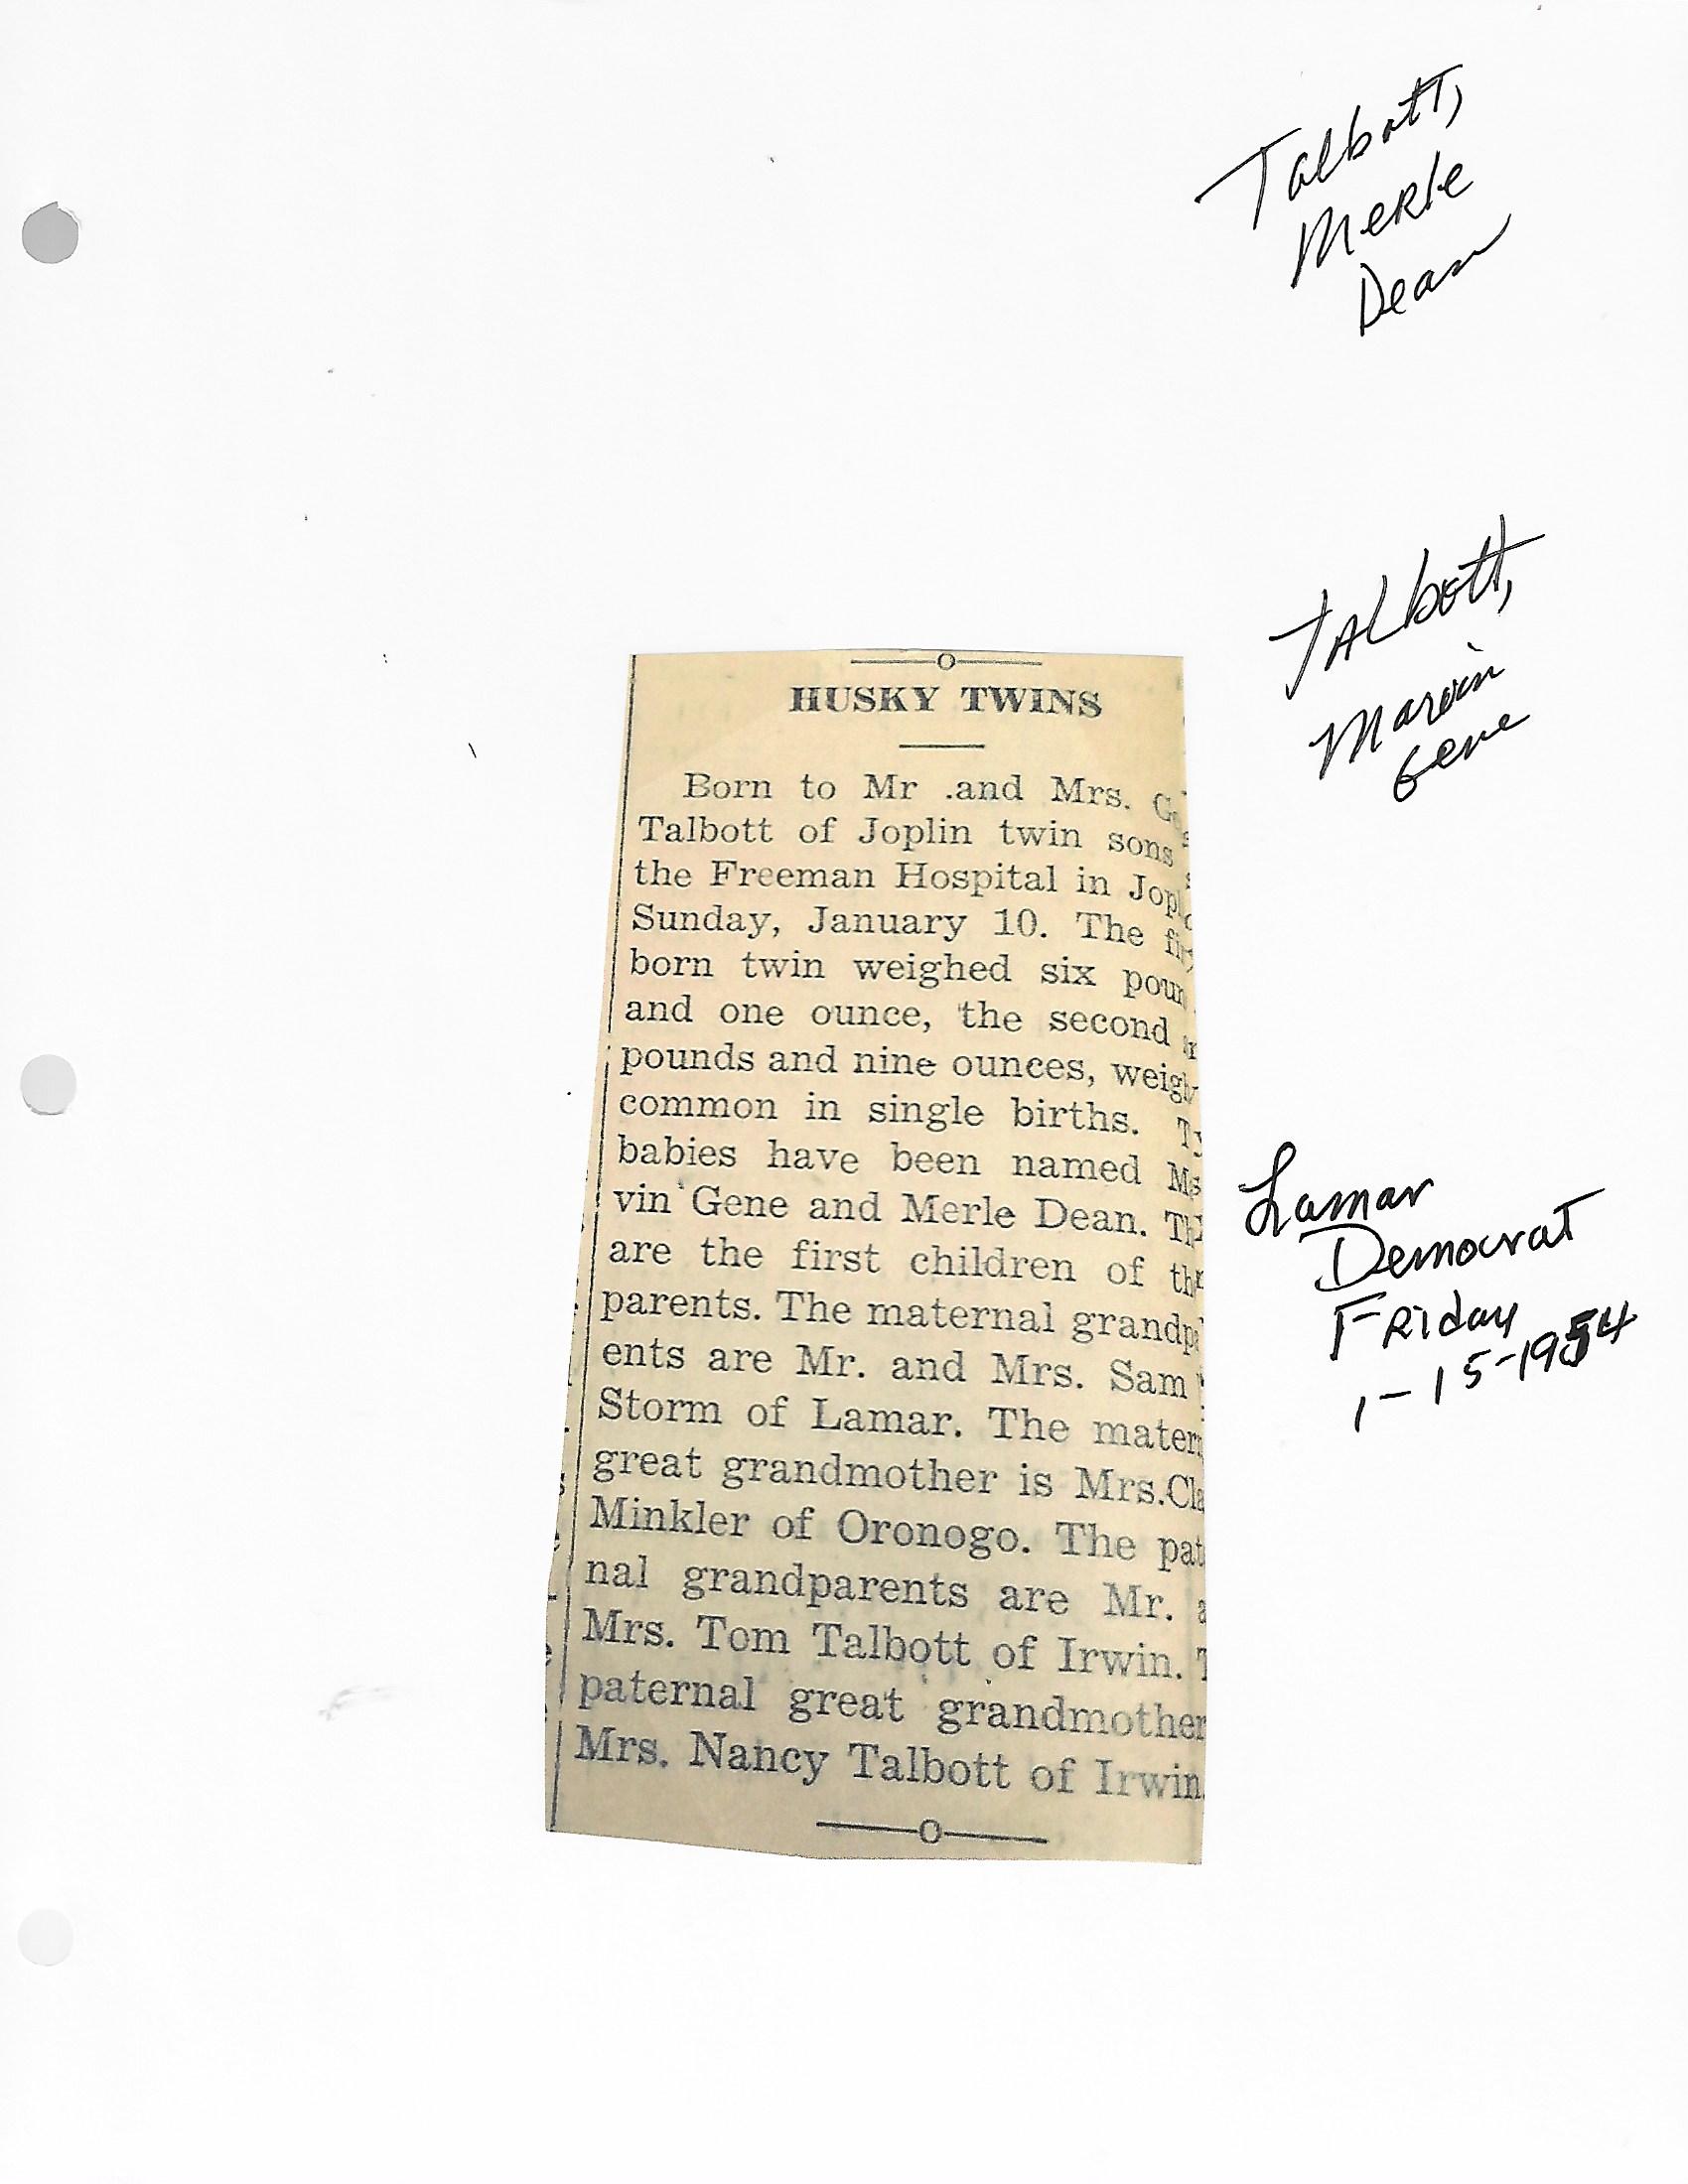 Talbott,
Merle
Dean
Talbott,
Marvin
Gene
HUSKY TWINS
Born to Mr .and Mrs.
Talbott of Joplin twin sons
the Freeman Hospital in Jopl
Sunday, January 10. The fi
born twin weighed six poun
and one ounce, the second
pounds and nine ounces, weigh
common in single births.
babies have been named Ma
vin Gene and Merle Dean. Th
are the first children of th
parents. The maternal grandp
ents are Mr. and Mrs. Sam
Storm of Lamar. The matern
great grandmother is Mrs.Cla
Minkler of Oronogo. The pat
nal grandparents are Mr. a
Mrs. Tom Talbott of Irwin. T
paternal great grandmother
Mrs. Nancy Talbott of Irwin.
Lamar
Democrat
Friday
1-15-1954